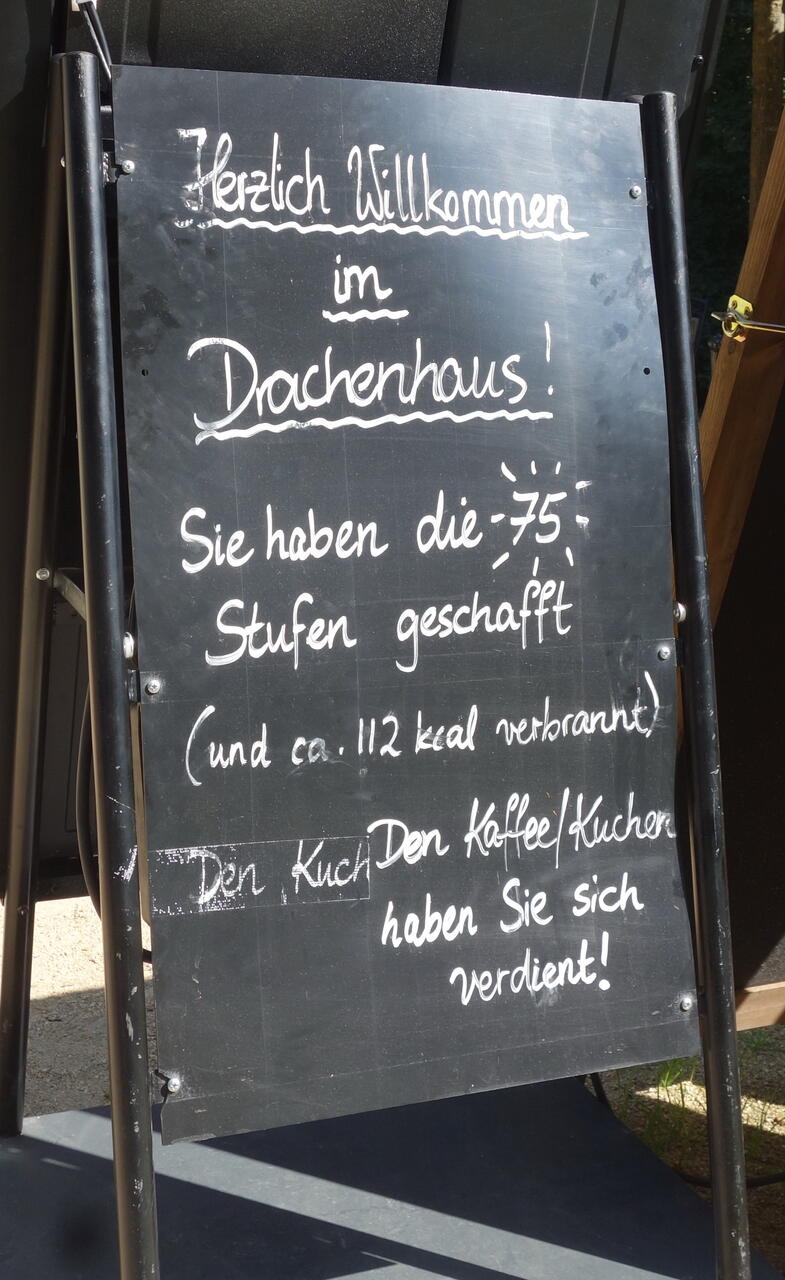 Herzlich Willkommen
im
Drachenhaus!
Sie haben die 75
Stufen geschafft
(und ca. 112 kcal verbrannt)
Den Kuch
Den Kaffee/Kuchen
haben Sie sich
verdient!